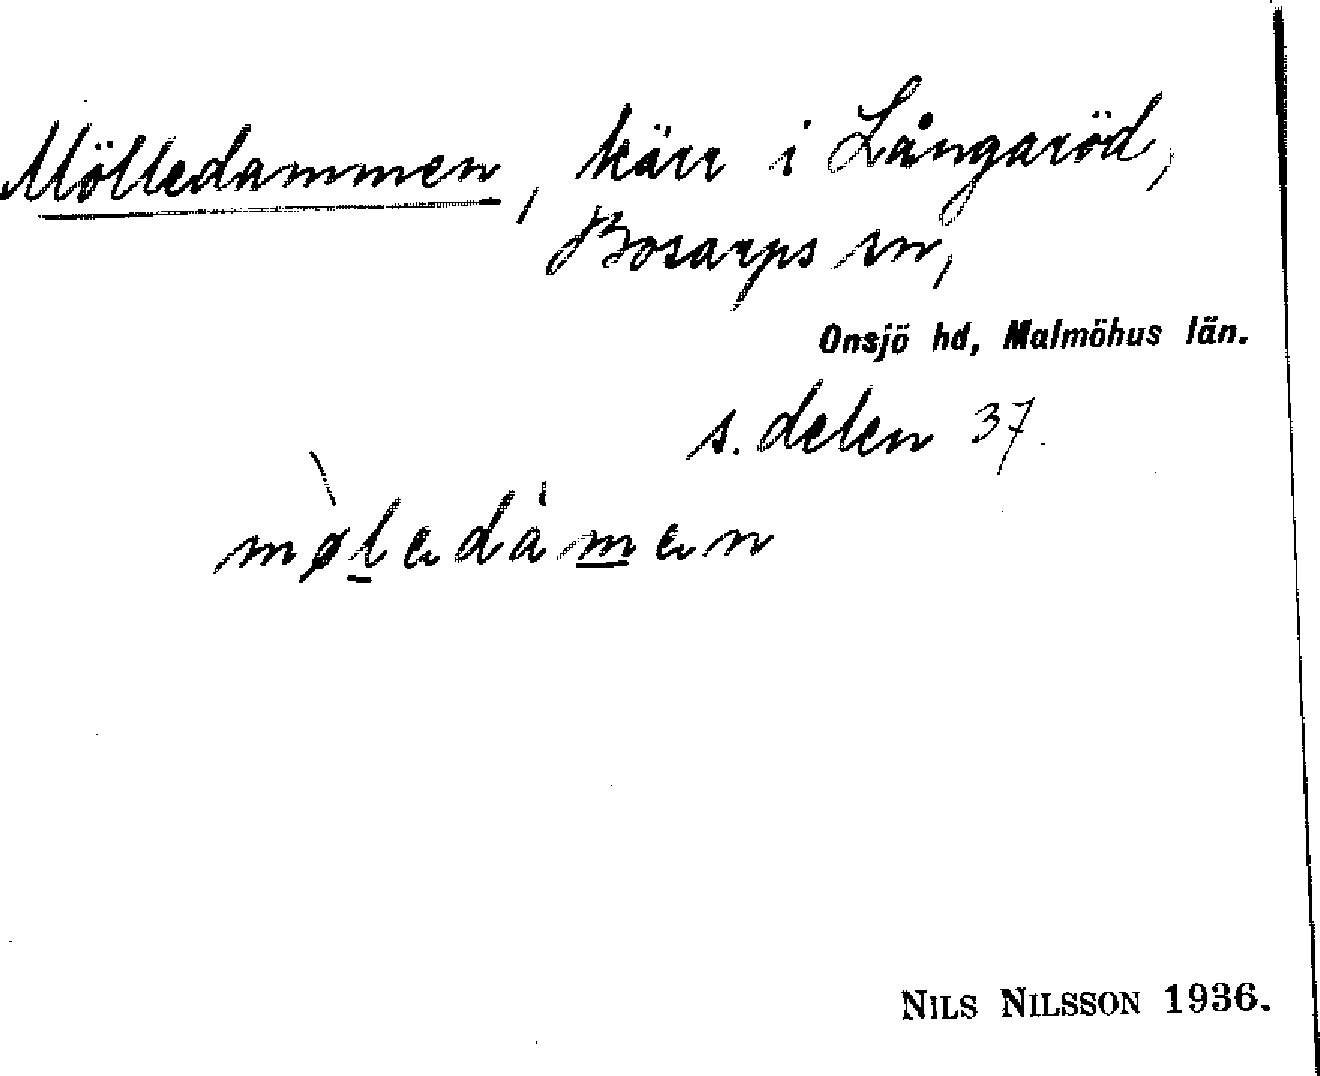 Mölledammen, kärr i Långaröd,
Bosarps sn,
Onsjö hd, Malmöhus län.
s. delen 37.
mø̀lədàmən
NILS NILSSON 1936.